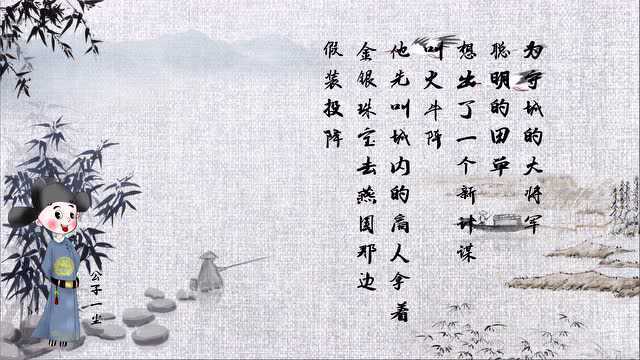 为守城的大将军
聪明的田单
想出了一个新计谋
叫火牛阵
他先叫城内的商人拿着
金银珠宝去燕国那边
假装投降
公子一尘